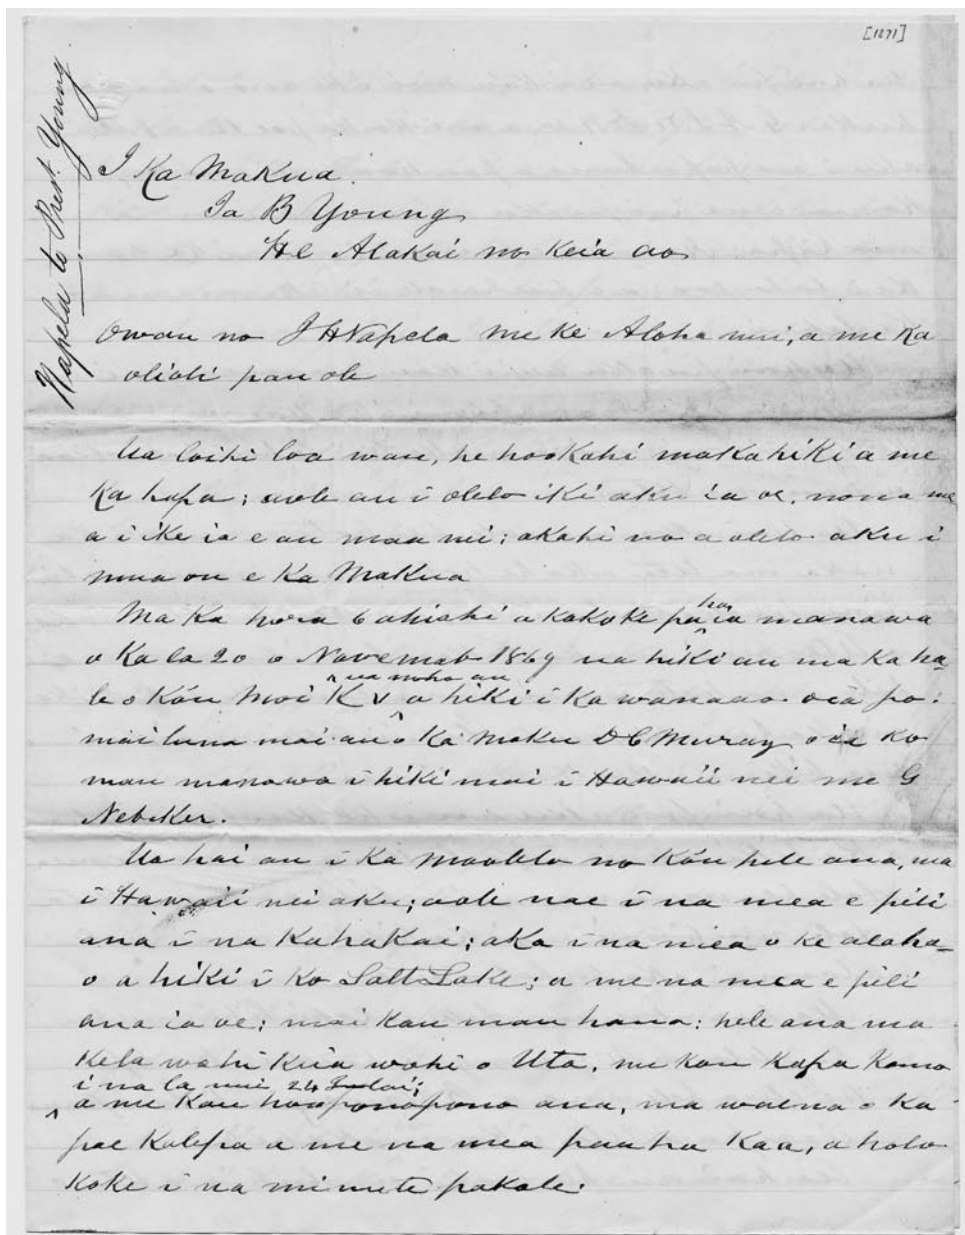 [1871]
Napela to Prest. Young
I Ka Makua.
Ia B Young
He Alakai no keia ao
Owau no J H Napela me ke Aloha nui, a me Ka
olioli pau ole
Ua loihi loa wau, he hookahi makahiki a me
Ka hapa; aole au i olelo iki aku ia oe, no na me
a i ike ia e au maa nei; akahi no a olelo aku i
mua ou e Ka Makua
Ma Ka hora 6 ahiahi a kokoke paha ia manawa
o Ka la 20 o Novemab 1869 ua hiki au ma Ka ha-
le o Kóu Moi K V ua noho au a hiki i Ka wanaao oia po:
mai luna mai au o Ka moku D C Muray, oia ko
mau manawa i hiki mai i Hawaii nei me G
Nebeker.
Ua hai au i Ka moolelo no Kóu hele ana, ma
i Hawaii nei aku; aole nae i na mea e pili
ana i na Kahakai; aka i na mea o ke alaha-
o a hiki i ko Salt Lake; a me na mea e pili
ana ia oe; mai kau mau hana; hele ana ma
Kela wahi Keia wahi o Uta, me kou Kapa Komo
i na la nui 24 Iulai;
a me Kau hooponopono ana, ma waena o Ka
poe Kalepa a me na mea paaha Kaa, a holo
Koke i na minute pokole.